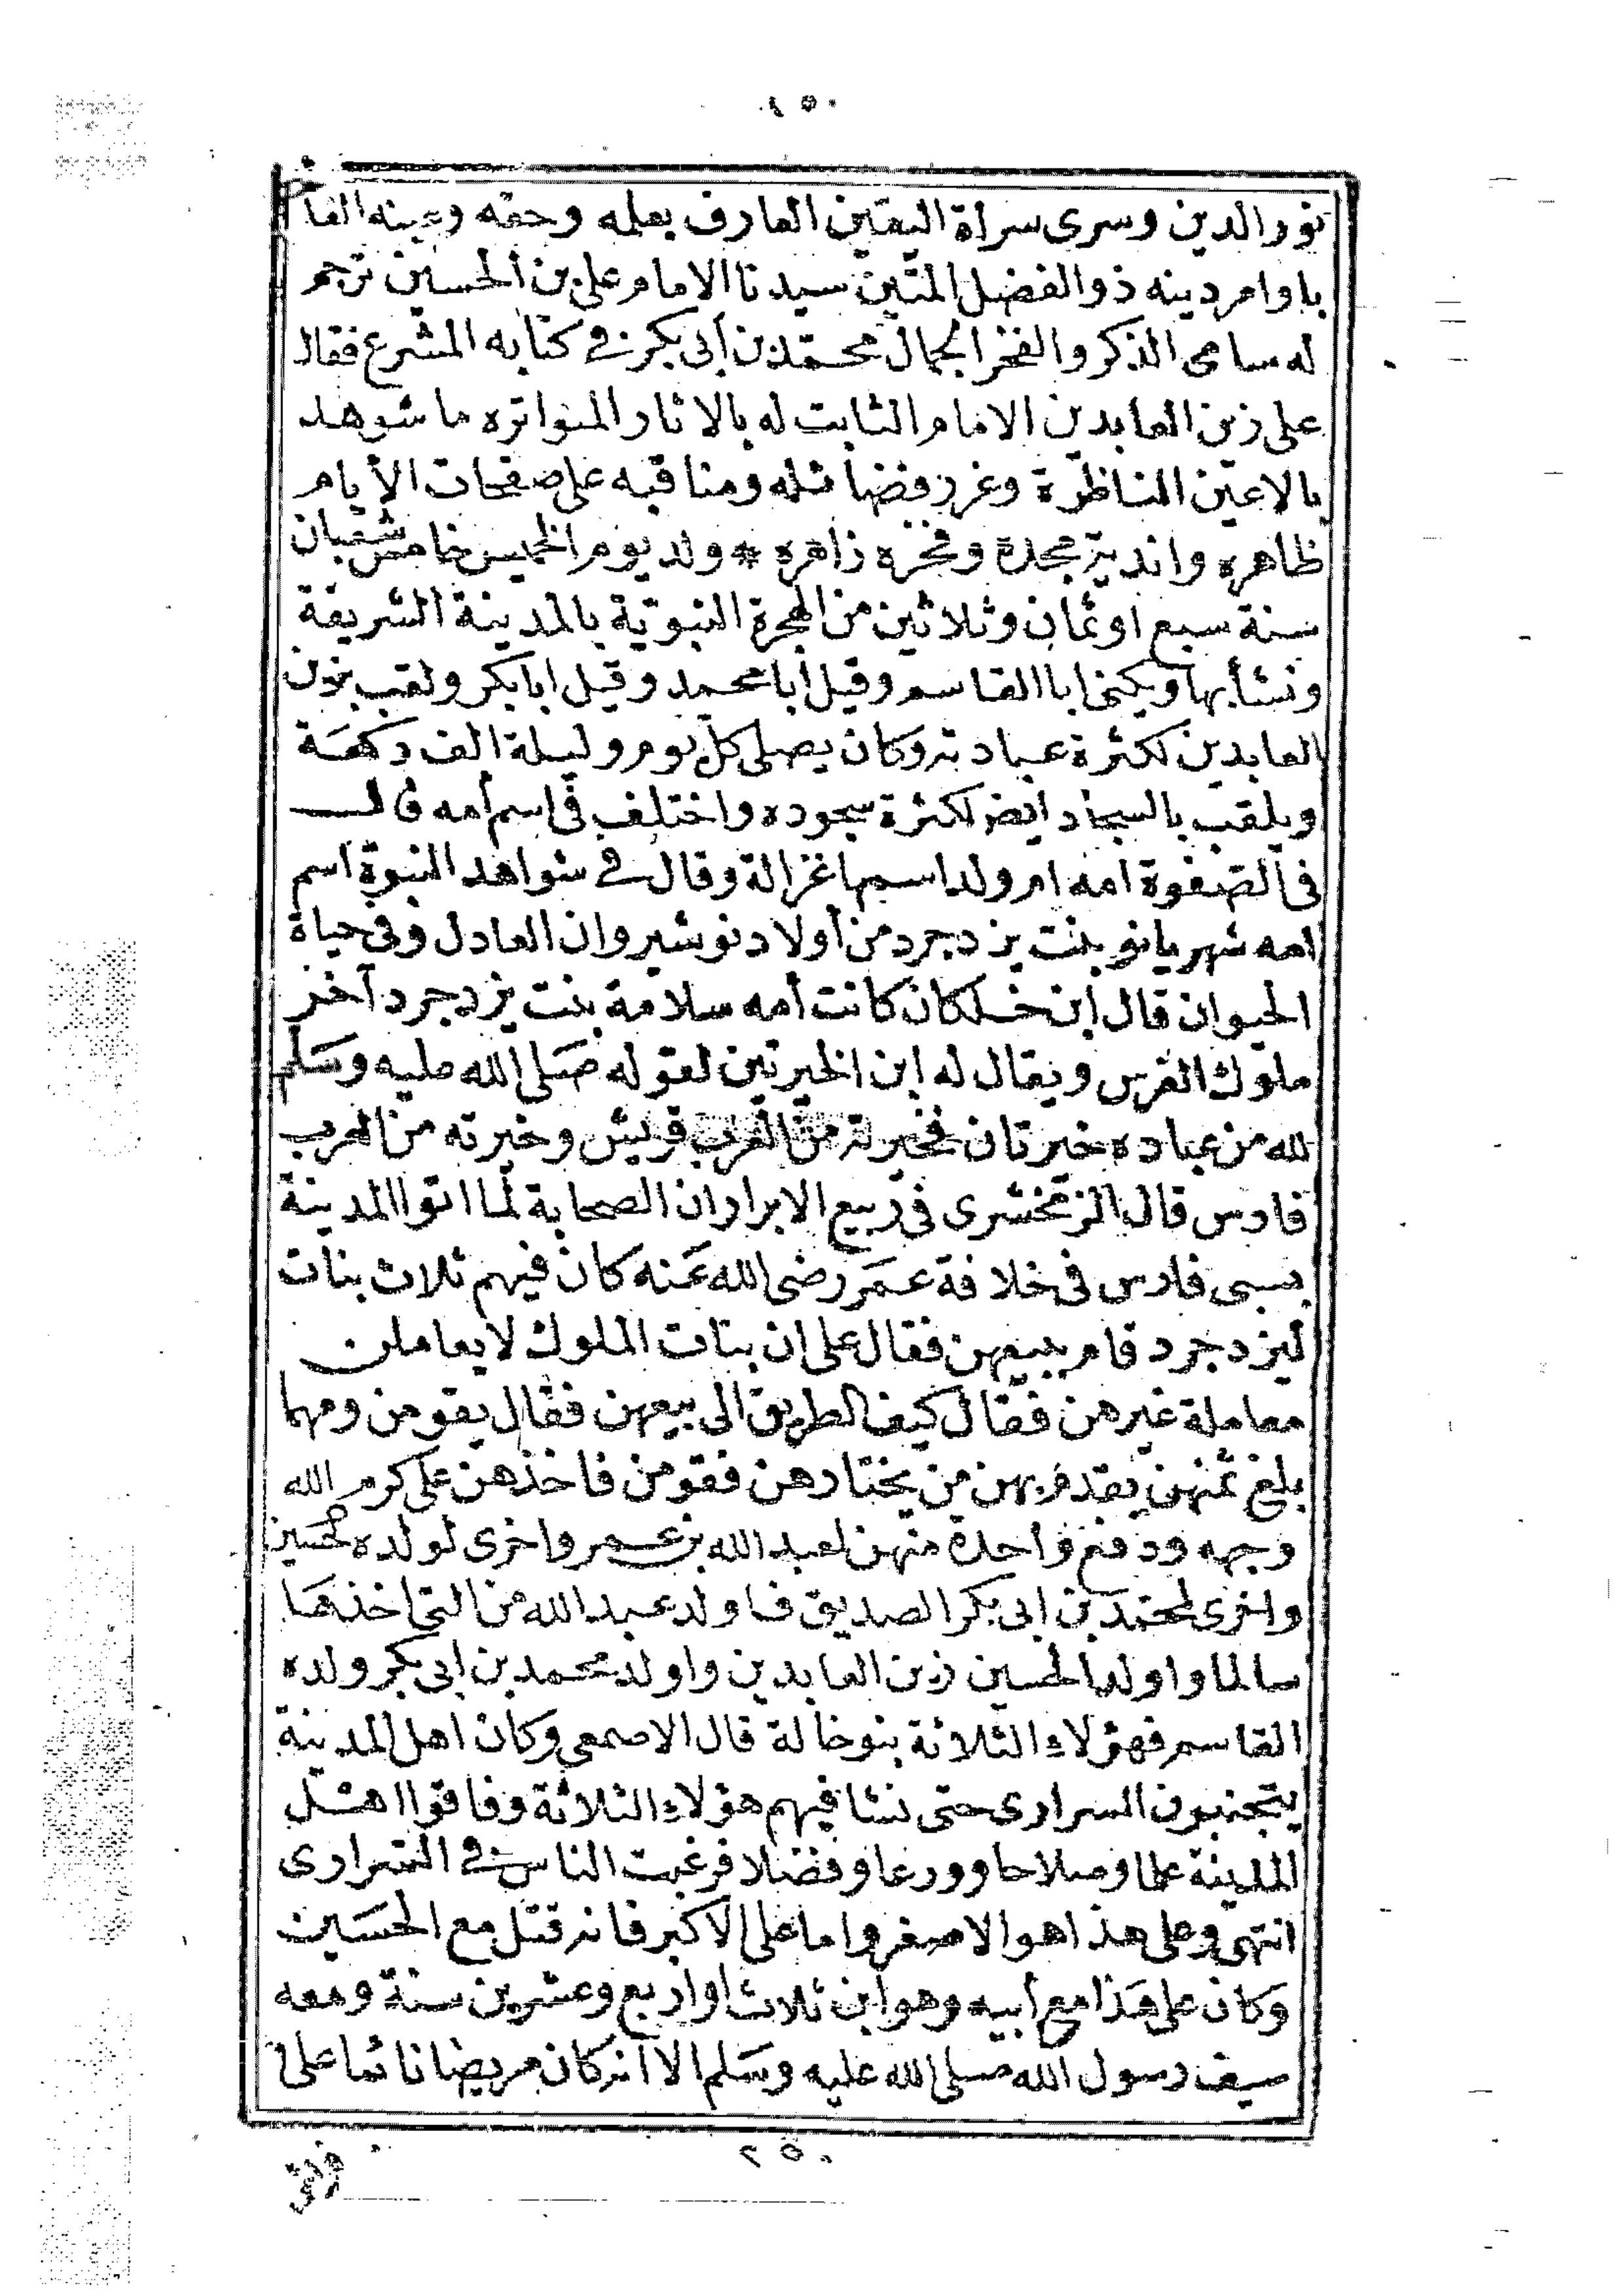 ٤٥٠
نور الدين وسرى سراة اليقين العارف بعلمه وحقه وعينه القا
باوامر دينه ذو الفضل المتين سيدنا الامام علي بن الحسين ترجم
له سامى الذكر والفخر الجمال محمد بن أبى بكر في كتابه المشرع فقال
على زين العابدين الامام الثابت له بالاثار المتواتره ما شوهد
بالاعين الناظرة وغرر فضائله ومناقبه على صفحات الأيام
ظاهره واندية مجده وفخره زاهره * ولد يوم الخميس خامس شعبان
سنة سبع او ثمان وثلاثين من الهجرة النبوية بالمدينة الشريفة
ونشأ بها ويكنى ابا القاسم وقيل أبا محمد وقيل ابا بكر ولقب بزين
العابدين لكثرة عبادته وكان يصلى كل يوم وليلة الف ركعة
ويلقب بالسجاد ايضا لكثرة سجوده واختلف فى اسم أمه قال
فى الصفوة امه ام ولد اسمها غزالة وقال في شواهد النبوة اسم
امه شهربانو بنت يزدجرد من أولاد نوشيروان العادل وفى حياة
الحيوان قال ابن خلكان كانت أمه سلامة بنت يزدجرد آخر
ملوك الفرس ويقال له ابن الخيرتين لقوله صلى الله عليه وسلم
لله من عباده خيرتان فخيرته من العرب قريش وخيرته من العرب
فارس قال الزمخشرى فى ربيع الابرار ان الصحابة لما اتوا المدينة
بسبى فارس فى خلافة عمر رضى الله عنه كان فيهم ثلاث بنات
ليزدجرد قام ببيعهن فقال على ان بنات الملوك لا يعاملن
معاملة غيرهن فقال كيف الطريق الى بيعهن فقال يقومن ومهما
بلغ ثمنهن يقدم بهن من يختارهن فقومن فاخذهن على كرم الله
وجهه ودفع واحدة منهن لعبد الله بن عمر واخرى لولده الحسين
واخرى لمحمد بن ابى بكر الصديق فاولد عبد الله من التى اخذها
سالما واولد الحسين زين العابدين واولد محمد بن ابى بكر ولده
القاسم فهؤلاء الثلاثة بنو خالة قال الاصمعى وكان اهل المدينة
يتجنبون السرارى حتى نشا فيهم هؤلاء الثلاثة وفاقوا اهل
المدينة علما وصلاحا وورعا وفضلا فرغبت الناس في السرارى
انتهى وعلى هذا هو الاصغر واما على الاكبر فانه قتل مع الحسين
وكان على هذا مع أبيه وهو ابن ثلاث او اربع وعشرين سنة ومعه
سيف رسول الله صلى الله عليه وسلم الا انه كان مريضا نائما على
٢٥٠